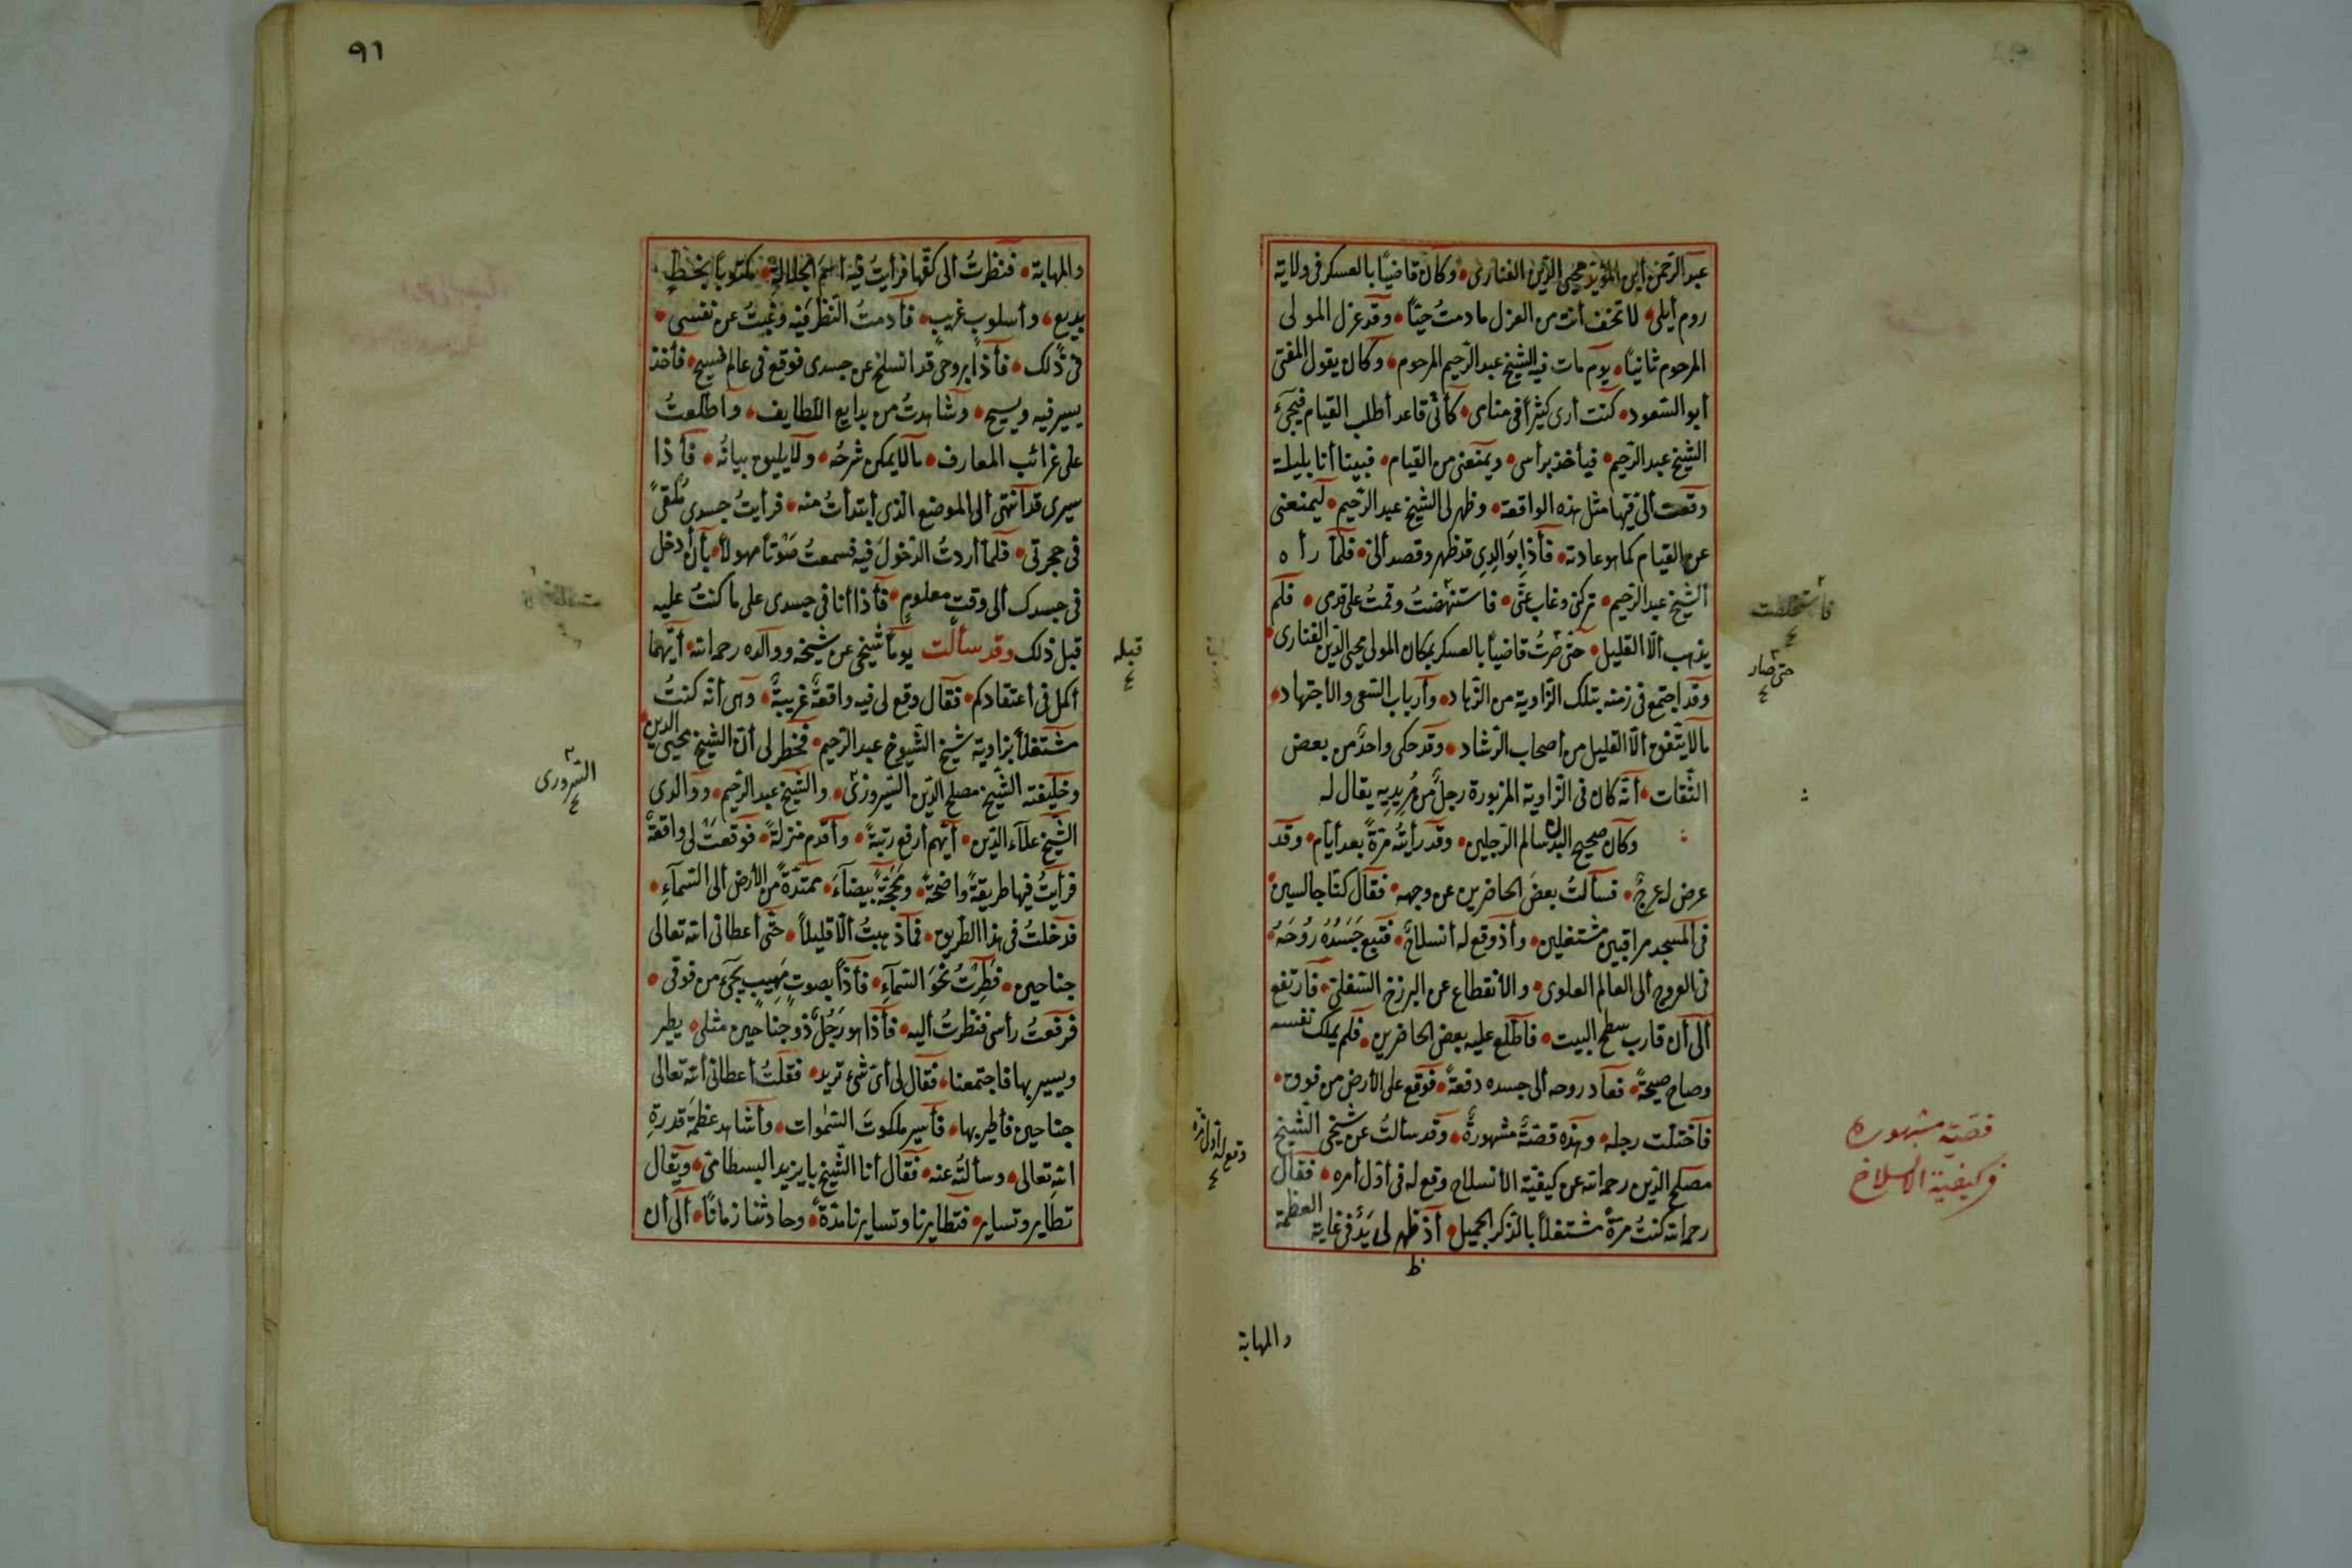 عبد الرحمن ابن المؤيد محيى الدين الفنارى وكان قاضيًا بالعسكر فى ولاية
روم أيلى لا تخف أنت من العزل مادمتُ حيًّا وقد عزل المولى
المرحوم ثانيًا يوم مات فيه الشيخ عبد الرحيم المرحوم وكان يقول المفتى
أبو السعود كنت أرى كثيرًا فى منامى كأنى قاعد أطلب القيام فيجىء
الشيخ عبد الرحيم فيأخذ برأسى ويمنعنى من القيام فبينا أنا بليلة
وقعت لى فيها مثل هذه الواقعة وظهر لى الشيخ عبد الرحيم ليمنعنى
عن القيام كما هو عادته فأذا بوالدى قد ظهر وقصد ألىّ فلمّا رأه
الشيخ عبد الرحيم تركنى وغاب عنّى فاستنهضتُ وقمتُ على قدمى فلم
يذهب ألّا القليل حتى صرتُ قاضيًا بالعسكر بمكان المولى محيى الدين الفنارى
وقد اجتمع فى زمنه بتلك الزاوية من الزهاد وأرباب السعى والأجتهاد
مالا يتّفق ألّا القليل من أصحاب الرشاد وقد حكى واحد من بعض
الثقات أنّه كان فى الزاوية المزبورة رجلٌ من مُريديه يقال له
وكان صحيح البدن سالم الرجلين وقد رأيته مرّةً بعد أيام وقد
عرض له عرجٌ فسألتُ بعضَ الحاضرين عن وجهه فقال كنّا جالسين
فى المسجد مراقبين مشتغلين وأذ وقع له أنسلاخٌ فتبع جَسَدُهُ رُوحَهُ
فى العروج ألى العالم العلوى والأنقطاع عن البرزخ السفلىّ فارتفع
ألى أن قارب سطح البيت فاطّلع عليه بعض الحاضرين فلم يملك نفسه
وصاح صيحةً فعاد روحه ألى جسده دفعةً فوقع على الأرض من فوق
فاختلت رجله وهذه قصّةٌ مشهورةٌ وقد سألتُ عن شيخى الشيخ
مصلح الدين رحمه الله عن كيفيّة الأنسلاخ وقع له فى أوّل أمره فقال
رحمه الله كنتُ مرةً مشتغلاً بالذكر الجميل أذ ظهر لى يَدٌ فى غاية العظمة
والمهابة
فاستخلصت
حتى صار
قصّة مشهورة
فى كيفيّة الانسلاخ
وقع له أول مرة
٩١
والمهابة فنظرتُ ألى كفّها فرأيتُ فيه أسمَ الجلالةِ مكتوبًا بخطٍّ
بديع وأسلوبٍ غريبٍ فأدمتُ النّظر فيه وغبتُ عن نفسى
فى ذلك فأذا بروحى قد انسلخ عن جسدى فوقع فى عالم فسيح فأخذ
يسير فيه ويسيح وشاهدتُ من بدايع اللطايف وأطّلعتُ
على غرائب المعارف مالا يمكن شرحُه ولا يليق بيانُه فأذا
سيرى قد أنتهى ألى الموضع الذى أبتدأتُ منه فرأيتُ جسدى مُلقىً
فى حجرتى فلمّا أردتُ الدّخولَ فيه فسمعتُ صَوْتًا مهولاً بأن أدخل
فى جسدك ألى وقتٍ معلومٍ فأذا أنا فى جسدى على ما كنتُ عليه
قبل ذلك وقد سألت يومًا شيخى عن شيخه ووالده رحمه الله أيّهما
أكمل فى أعتقادكم فقال وقع لى فيه واقعةٌ غريبةٌ وهى أنّه كنتُ
مشتغلاً بزاوية شيخ الشيوخ عبد الرحيم فخطر لى أنّ الشيخ محيى الدين
وخليفته الشّيخ مصلح الدين السيروزىّ والشّيخ عبد الرّحيم ووالدى
الشّيخ علاء الدين أيّهم أرفع رتبةً وأقدم منزلةً فوقعت لى واقعةٌ
فرأيتُ فيها طريقةً واضحةً ومحجّةً بيضاءَ ممتدّةً من الأرض ألى السّماءِ
فدخلتُ فى هذا الطريق فما ذهبتُ ألّا قليلاً حتّى أعطانى الله تعالى
جناحين فطِرتُ نحوَ السّماءِ فأذا بصوتٍ مهيبٍ يجىء من فوقى
فرفعتُ رأسى فنظرتُ أليه فأذا هو رَجُلٌ ذو جناحين مثلى يطير
ويسير بها فاجتمعنا فقال لى أىّ شىء تريد فقلتُ أعطانى الله تعالى
جناحين فأطير بها فأسير ملكوتَ السّموات وأشاهد عظمَةَ قدرةِ
الله تعالى وسألتُه عنه فقال أنا الشّيخ بايزيد البسطامىّ ويقال
تطاير وتساير فتطايرنا وتسايرنا مدّةً وحادثنا زمانًا ألى أن
قبله
السّرورى